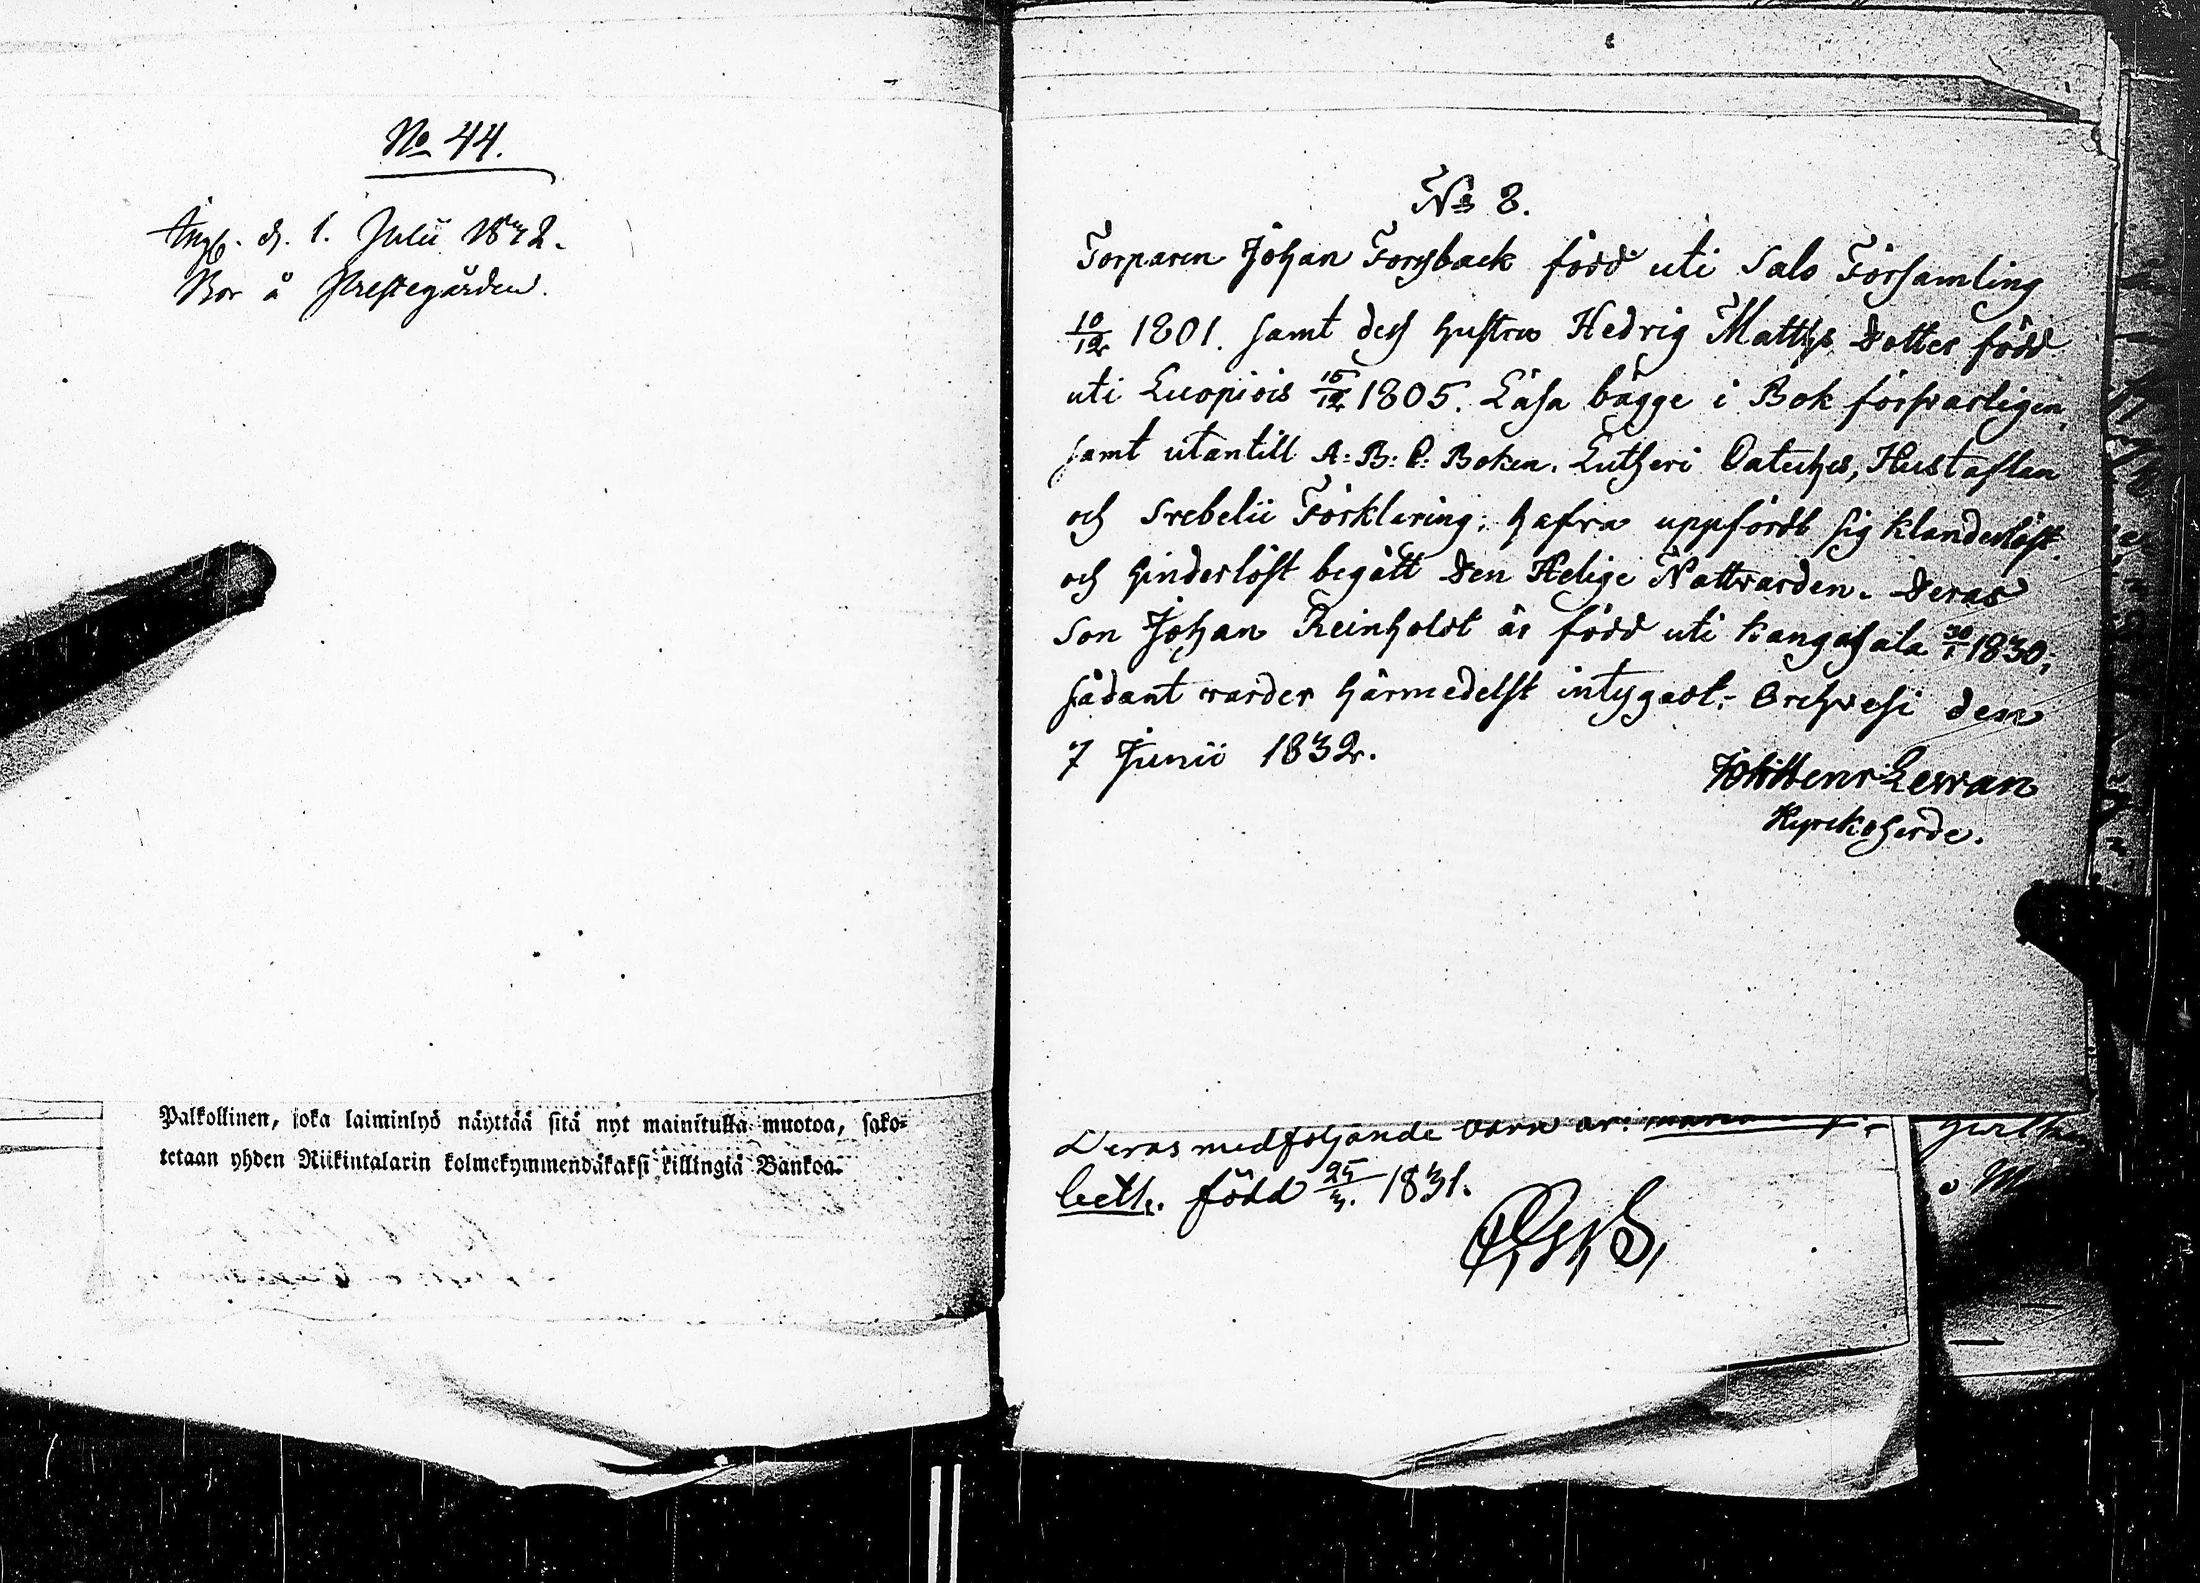 No 44.
d. 1. Julii 1832.
Bor å Prestegården.
Palkollinen, joka laiminlyö näyttää sitä nyt mainitulla muotoa, sako-
tetaan yhden Riikintalarin kolmekymmendäkaksi killingiä Bankoa.
No 8.
Torparen Johan Forsback född uti Salo Församling
10/12 1801. samt dess hustru Hedvig Matths dotter född
uti Luopiois 15/12 1805. Läsa bägge i Bok försvarligen,
samt utantill A: B: C: Boken. Lutheri Cateches, Hustaflan
och Svebelii Förklaring; hafva uppfördt sig klanderlöst
och hinderlöst begått den Helige Nattvarden. Deras
Son Johan Reinholdt är född uti Kangasala 30/1 1830;
sådant varder härmedelst intygadt. Orehvesi den
7 Junii 1832.
Joh Henr Levvan
Kyrckoherde.
Deras medföljande barn är: Maria
beth. född 25/3. 1831.